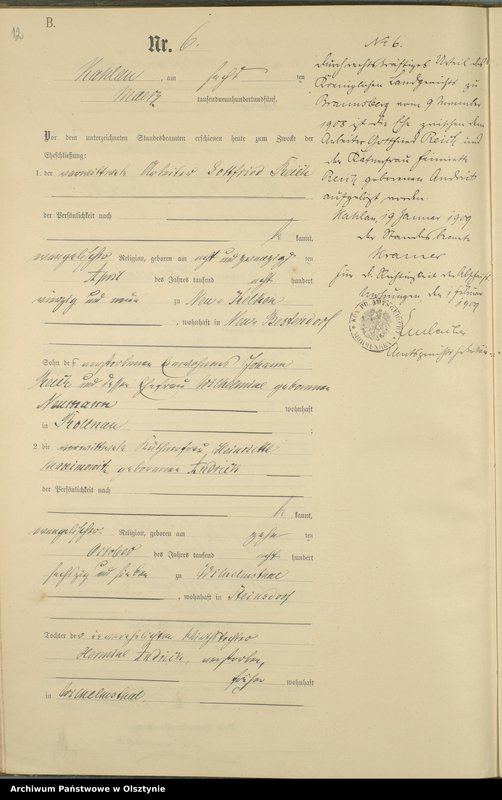 12
B.
Nr. 6.
Kahlau, am sechs ten
Maerz tausendneunhundertundfünf.
Vor dem unterzeichneten Standesbeamten erschienen heute zum Zwecke der
Eheschließung:
1. der verwittwete Arbeiter Gottfried
der Persönlichkeit nach
kannt,
evangelischer Religion, geboren am acht und zwanzig ten
April des Jahres tausend acht hundert
vierzig und neun zu Neu
, wohnhaft in Neu Bestendorf
Sohn des verstorbenen Einwohners Johann
und dessen Ehefrau Wilhelmine geborenen
Neumann wohnhaft
in Kollnau ;
2. die verwittwete Käthnerfrau Henriette
geborene Andrick
der Persönlichkeit nach
kannt,
evangelischer Religion, geboren am zehn ten
October des Jahres tausend acht hundert
sechszig und sieben zu Wilhelmsthal
, wohnhaft in Reinsdorf
Tochter der unverehelichten
Hermine Andrick, verstorben,
früher wohnhaft
in Wilhelmsthal.
No 6.
Durch rechtskräftiges Urteil des
Königlichen Landgerichts zu
Braunsberg vom 9 November
1908 ist die Ehe zwischen dem
Arbeiter Gottfried und
der Käthnerfrau Henriette
geborenen Andrick
aufgelöst worden.
Kahlau, 19 Januar 1909
der Standesbeamte
Kramer
Für die Richtigkeit des
Mohrungen den Februar
1909
Archiwum Państwowe w Olsztynie